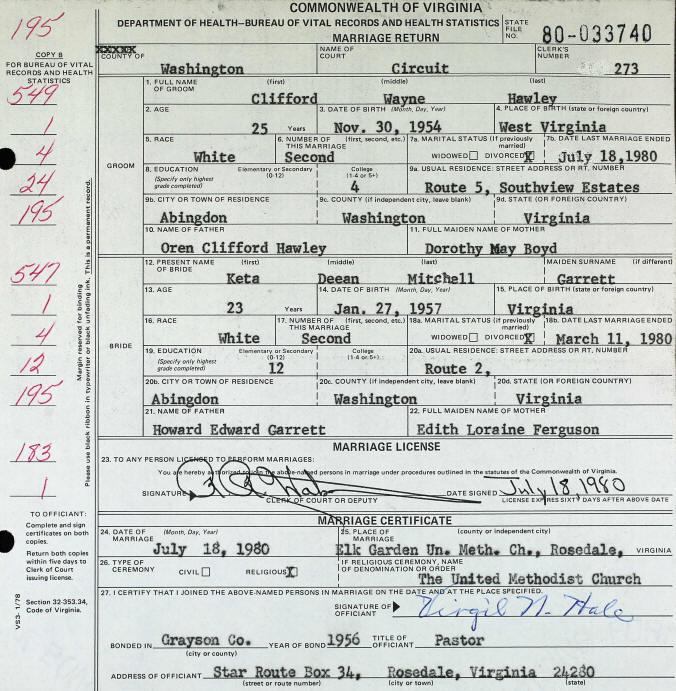 COMMONWEALTH OF VIRGINIA
DEPARTMENT OF HEALTH—BUREAU OF VITAL RECORDS AND HEALTH STATISTICS
MARRIAGE RETURN
STATE FILE NO. 80-033740
195
COPY B
FOR BUREAU OF VITAL RECORDS AND HEALTH STATISTICS
549
1
4
24
195
547
1
4
12
195
183
1
Margin reserved for binding
Please use black ribbon in typewriter or black unfading ink. This is a permanent record.
TO OFFICIANT:
Complete and sign certificates on both copies.
Return both copies within five days to Clerk of Court issuing license.
Section 32-353.34, Code of Virginia.
VS3- 1/78
COUNTY OF Washington
NAME OF COURT Circuit
CLERK'S NUMBER 273
GROOM
1. FULL NAME OF GROOM (first) (middle) (last)
Clifford Wayne Hawley
2. AGE 25 Years
3. DATE OF BIRTH (Month, Day, Year) Nov. 30, 1954
4. PLACE OF BIRTH (state or foreign country) West Virginia
5. RACE White
6. NUMBER OF THIS MARRIAGE (first, second, etc.) Second
7a. MARITAL STATUS (If previously married) WIDOWED DIVORCED X
7b. DATE LAST MARRIAGE ENDED July 18,1980
8. EDUCATION (Specify only highest grade completed) Elementary or Secondary (0-12) College (1-4 or 5+) 4
9a. USUAL RESIDENCE: STREET ADDRESS OR RT. NUMBER Route 5, Southview Estates
9b. CITY OR TOWN OF RESIDENCE Abingdon
9c. COUNTY (if independent city, leave blank) Washington
9d. STATE (OR FOREIGN COUNTRY) Virginia
10. NAME OF FATHER Oren Clifford Hawley
11. FULL MAIDEN NAME OF MOTHER Dorothy May Boyd
BRIDE
12. PRESENT NAME OF BRIDE (first) (middle) (last) MAIDEN SURNAME (if different)
Keta Deean Mitchell Garrett
13. AGE 23 Years
14. DATE OF BIRTH (Month, Day, Year) Jan. 27, 1957
15. PLACE OF BIRTH (state or foreign country) Virginia
16. RACE White
17. NUMBER OF THIS MARRIAGE (first, second, etc.) Second
18a. MARITAL STATUS (if previously married) WIDOWED DIVORCED X
18b. DATE LAST MARRIAGE ENDED March 11, 1980
19. EDUCATION (Specify only highest grade completed) Elementary or Secondary (0-12) 12 College (1-4 or 5+)
20a. USUAL RESIDENCE: STREET ADDRESS OR RT. NUMBER Route 2,
20b. CITY OR TOWN OF RESIDENCE Abingdon
20c. COUNTY (if independent city, leave blank) Washington
20d. STATE (OR FOREIGN COUNTRY) Virginia
21. NAME OF FATHER Howard Edward Garrett
22. FULL MAIDEN NAME OF MOTHER Edith Loraine Ferguson
MARRIAGE LICENSE
23. TO ANY PERSON LICENSED TO PERFORM MARRIAGES:
You are hereby authorized to join the above-named persons in marriage under procedures outlined in the statutes of the Commonwealth of Virginia.
SIGNATURE
CLERK OF COURT OR DEPUTY
DATE SIGNED July 18, 1980
LICENSE EXPIRES SIXTY DAYS AFTER ABOVE DATE
MARRIAGE CERTIFICATE
24. DATE OF MARRIAGE (Month, Day, Year) July 18, 1980
25. PLACE OF MARRIAGE (county or independent city) Elk Garden Un. Meth. Ch., Rosedale, VIRGINIA
26. TYPE OF CEREMONY CIVIL RELIGIOUS X
IF RELIGIOUS CEREMONY, NAME OF DENOMINATION OR ORDER The United Methodist Church
27. I CERTIFY THAT I JOINED THE ABOVE-NAMED PERSONS IN MARRIAGE ON THE DATE AND AT THE PLACE SPECIFIED.
SIGNATURE OF OFFICIANT Virgil N. Hale
BONDED IN Grayson Co. (city or county) YEAR OF BOND 1956 TITLE OF OFFICIANT Pastor
ADDRESS OF OFFICIANT Star Route Box 34, Rosedale, Virginia 24280
(street or route number) (city or town) (state)